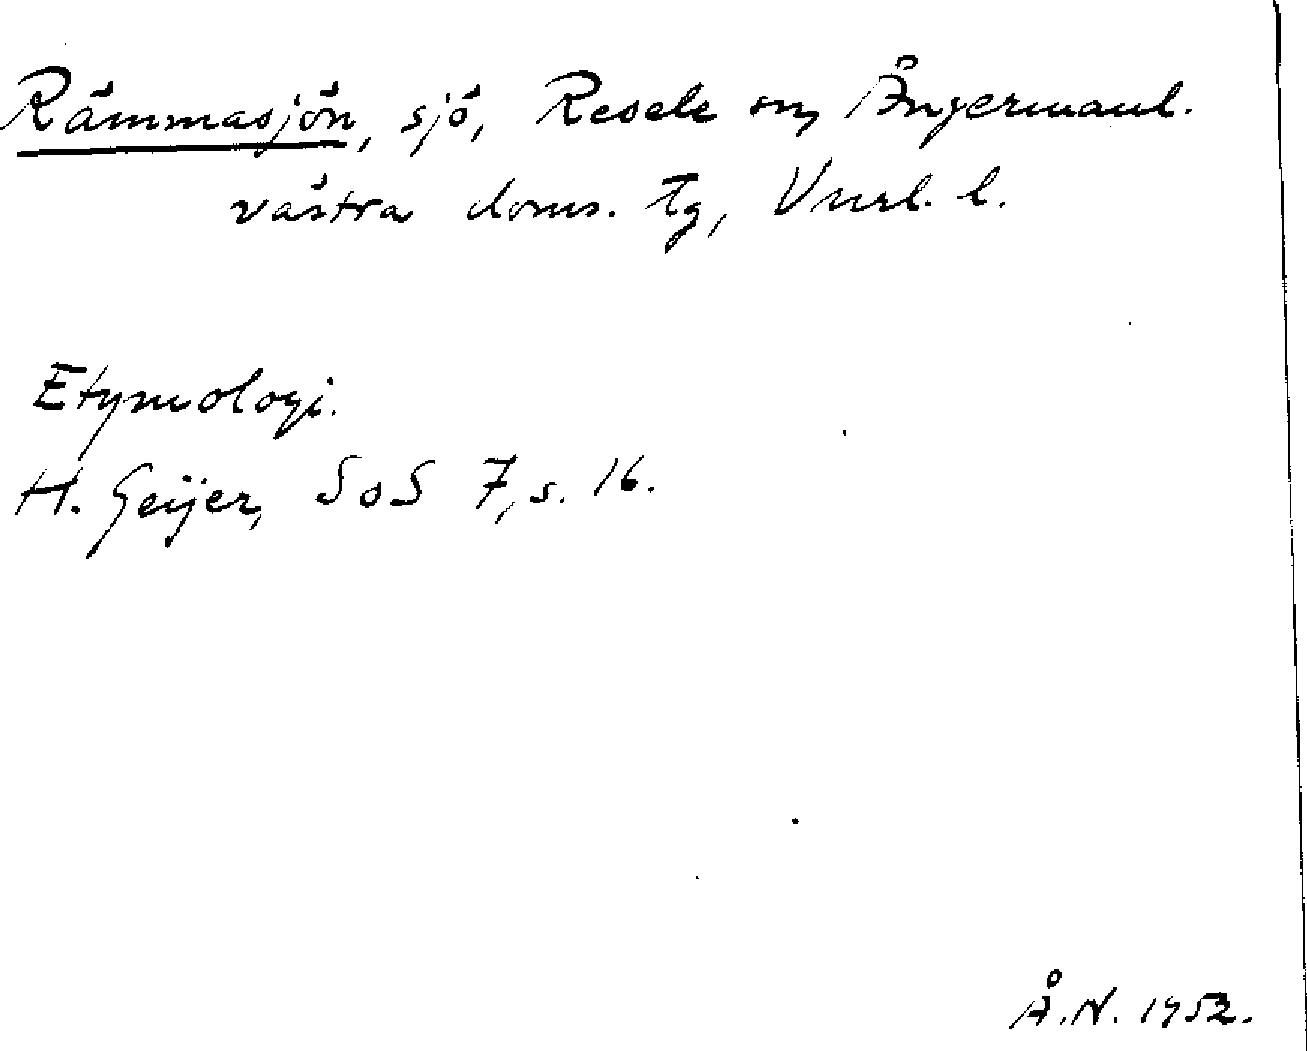 Rämmasjön, sjö, Resele sn, Ångermanl.
västra doms. Tg, Vnrl. l.
Etymologi.
H. Geijer, SoS 7, s. 16.
Å.N. 1952.